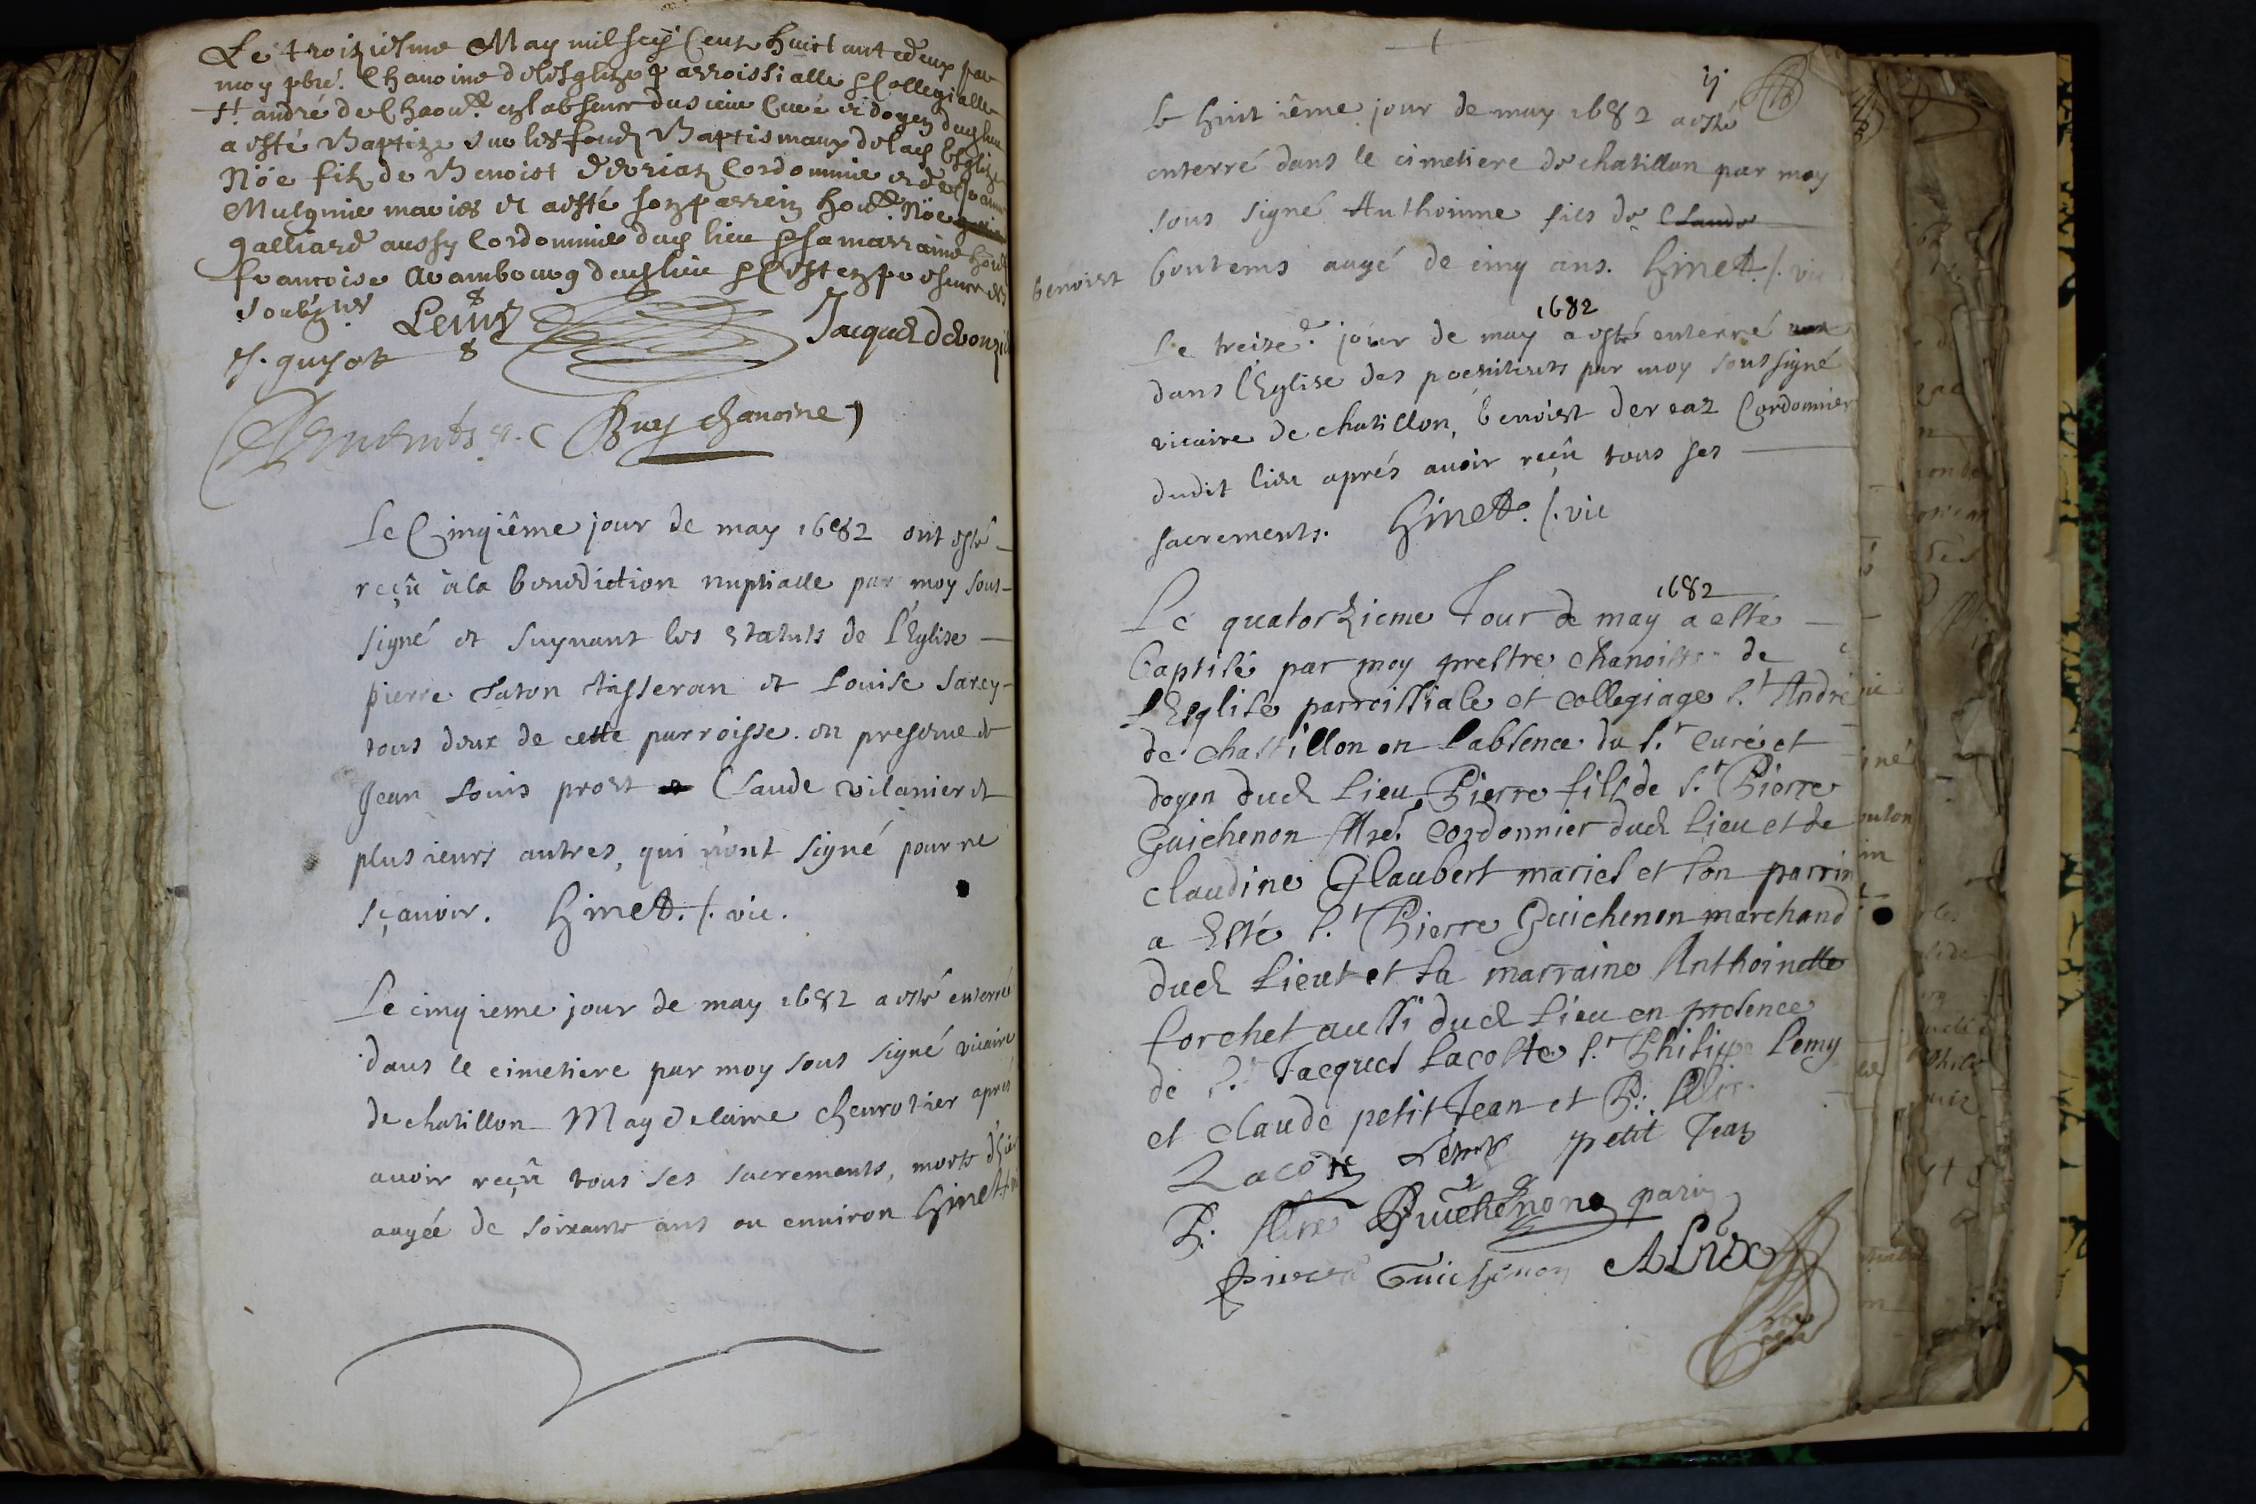 Le troiziesme May mil six Cent huict ante deux par
moy pbre. Chanoine delesglize parroissialle & Collegialle
St. andré de Chaon. en labsence du sieur Curé et doyen dud lieu
a esté Baptize sur les fondz Baptismaux de lad Esglize
Nöe filz de Benoist Deveriaz Cordonnier et de
Musgnie maries et a esté son parrein hon. Nöe
galliard aussy Cordonnier dud lieu & sa marraine hon
francoise avambourg dud lieu & cest en presence des
soubzsignes
Lemy
Jacques de
J. guyot
Buy chanoine
Le Cinqiême jour de may 1682 ont esté
reçû a la benediction nuptialle par moy sous-
signé et suyuant les statuts de l'Eglise
pierre Taton tisseran et Louise Sarcy
tous deux de cette parroisse. en presence de
Jean Louis prost et Claude vilanier et
plusieurs autres, qui n'ont signé pour ne
sçauoir. Ginet. p. vic.
Le cinqieme jour de may 1682 a esté enterré
dans le cimetiere par moy sous signé vicaire
de chatillon Magdelaine cheurotier aprés
auoir reçû tous ses sacrements, morte d'hier
augée de soixante ans ou enuiron Ginet
le huit iême jour de may 1682 a esté
enterré dans le cimetiere de chatillon par moy
sous signé Anthoinne fils de Claude
benoist boutems augé de cinq ans. Ginet p. vic
1682
Le treize.e jour de may a esté enterré
dans l'Eglise des poenitents par moy soussigné
vicaire de chatillon, benoist dereaz Cordonnier
dudit lieu aprés auoir reçû tous ses
sacrements. Ginet. p. vic
1682
Le quatorzieme Jour de may a esté
baptisé par moy prestre chanoisne de
l'Esglise parroissiale et collegiage St André
de chastillon en labsence du sr. curé et
doyen dud lieu Pierre fils de sr. Pierre
Guichenon Mre. cordonnier dud lieu et de
claudine Glaubert mariés et son parrin
a Esté sr. Pierre Guichenon marchand
dud lieut et sa marraine Anthoinette
forchet aussi dud lieu en presence
de Sr. Jacques Lacoste sr. Philipe Lemy
et claude petit Jean et P: Alix
Lacoste Lemy petit Jean
P: Alix Guichenon parin
pierre Guichenon ALix